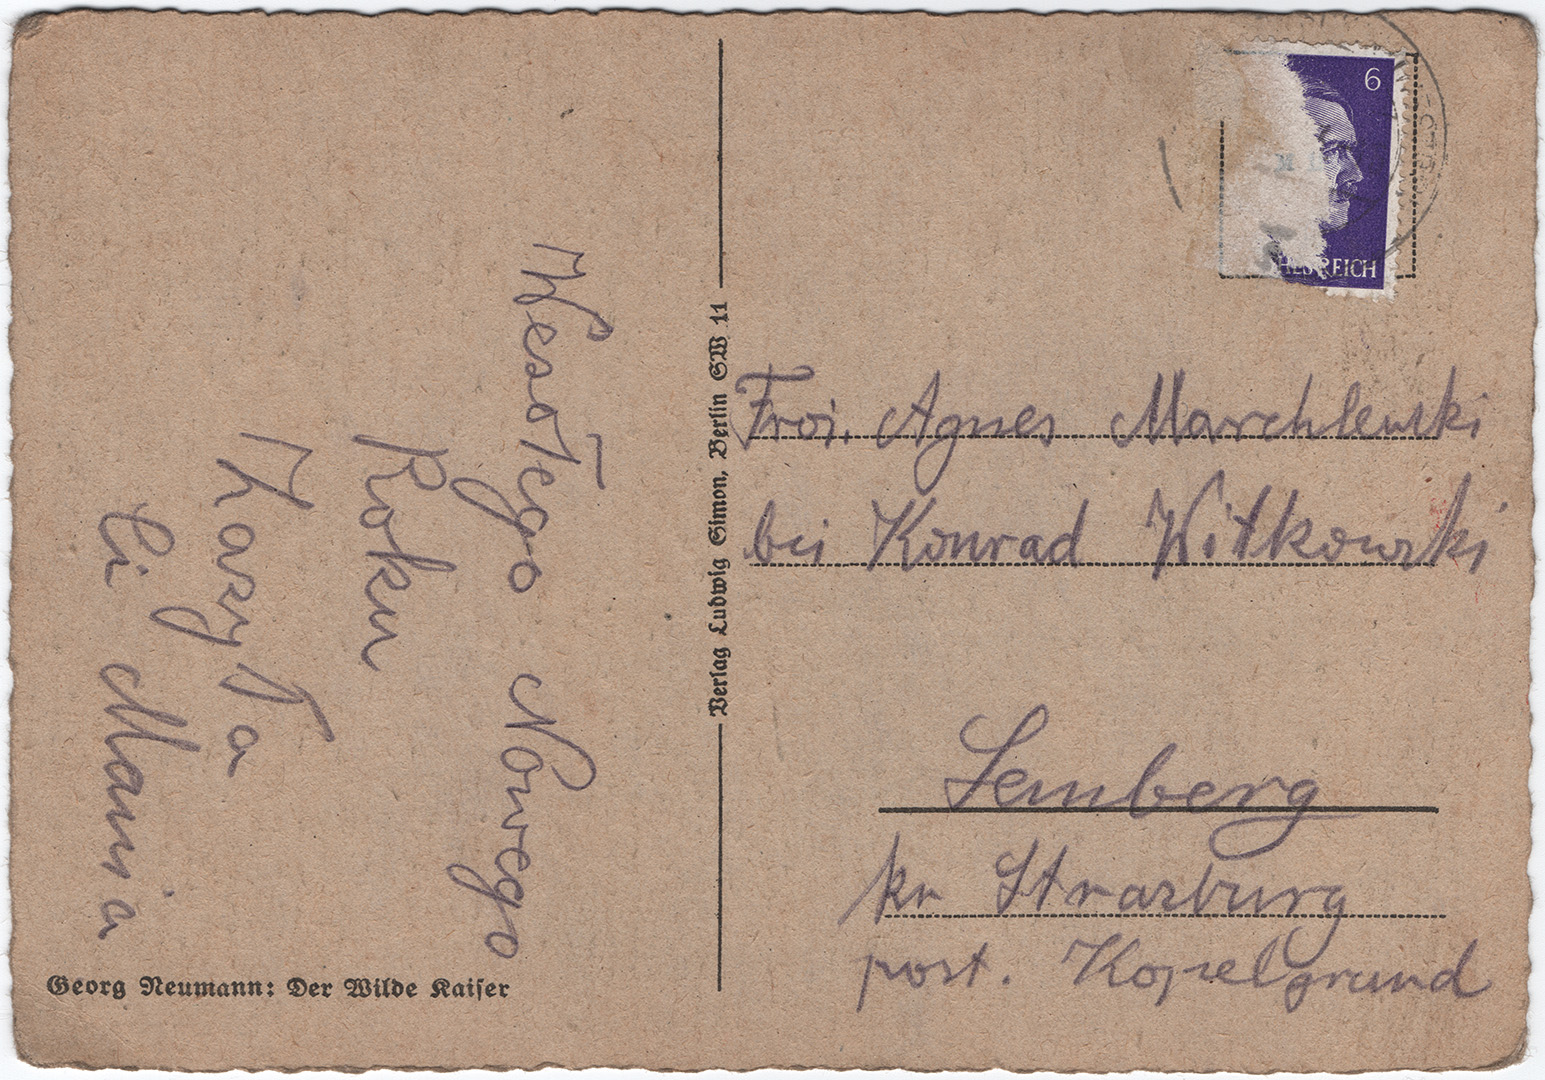 Wesotego Nowego
Roku
Kazyta
Ci Mania
Georg Neumann: Der Wilde Kaiser
Verlag Ludwig Simon, Berlin SW 11
6
HES REICH
Froi. Agnes Marchlewski
bei Konrad Witkowski
Lemberg
kr Strarburg
post. Kopelgrund